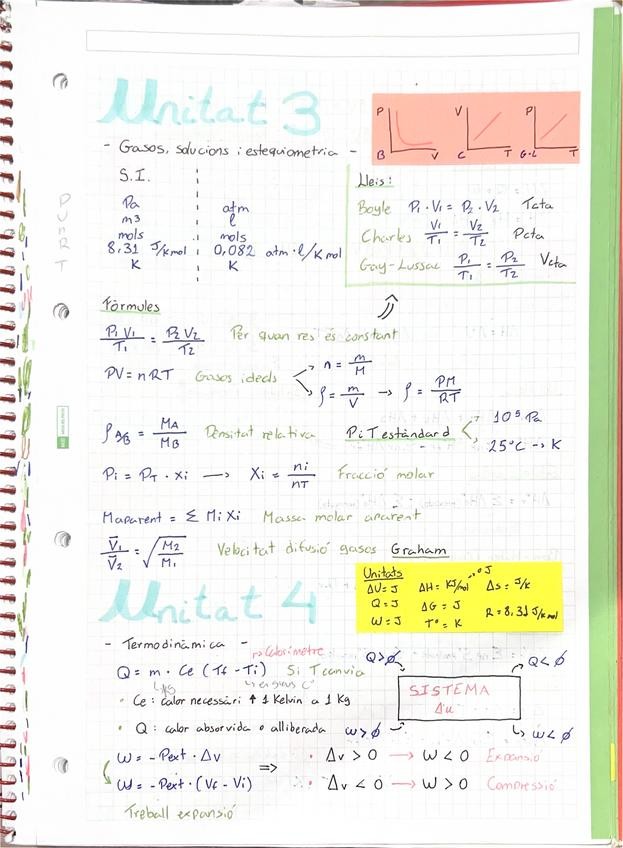 Unitat 3
- Gasos, solucions i estequiometria -
P V B
V T C
P T G-L
S.I.
Pa atm
m3 l
mols mols
8,31 J/Kmol 0,082 atm·l/Kmol
K K
P V n R T
Lleis:
Boyle P1·V1 = P2·V2 Tcta
Charles V1/T1 = V2/T2 Pcta
Gay-Lussac P1/T1 = P2/T2 Vcta
Fòrmules
P1V1/T1 = P2V2/T2 Per quan res és constant
PV = nRT Gasos ideals n = m/M
ρ = m/V → ρ = PM/RT
ρA/B = MA/MB Densitat relativa P i T estàndard 10⁵ Pa
25°C → K
Pi = PT · Xi → Xi = ni/nT Fracció molar
Maparent = Σ Mi Xi Massa molar aparent
V̅1/V̅2 = √M2/M1 Velocitat difusió gasos Graham
Unitats
ΔU = J ΔH = KJ/mol o J ΔS = J/K
Q = J ΔG = J
W = J T° = K R = 8,31 J/Kmol
Unitat 4
- Termodinàmica -
Calorímetre
Q = m · Ce (Tf - Ti) Si T canvia
Kg
· Ce: calor necessàri ↑ 1 Kelvin a 1 Kg
· Q: calor absorvida o alliberada
Q>∅ Q<∅
SISTEMA
Δu
W>∅ W<∅
W = -Pext · Δv ⇒ · Δv > 0 → W < 0 Expansió
W = -Pext · (Vf - Vi) · Δv < 0 → W > 0 Compressió
Treball expansió